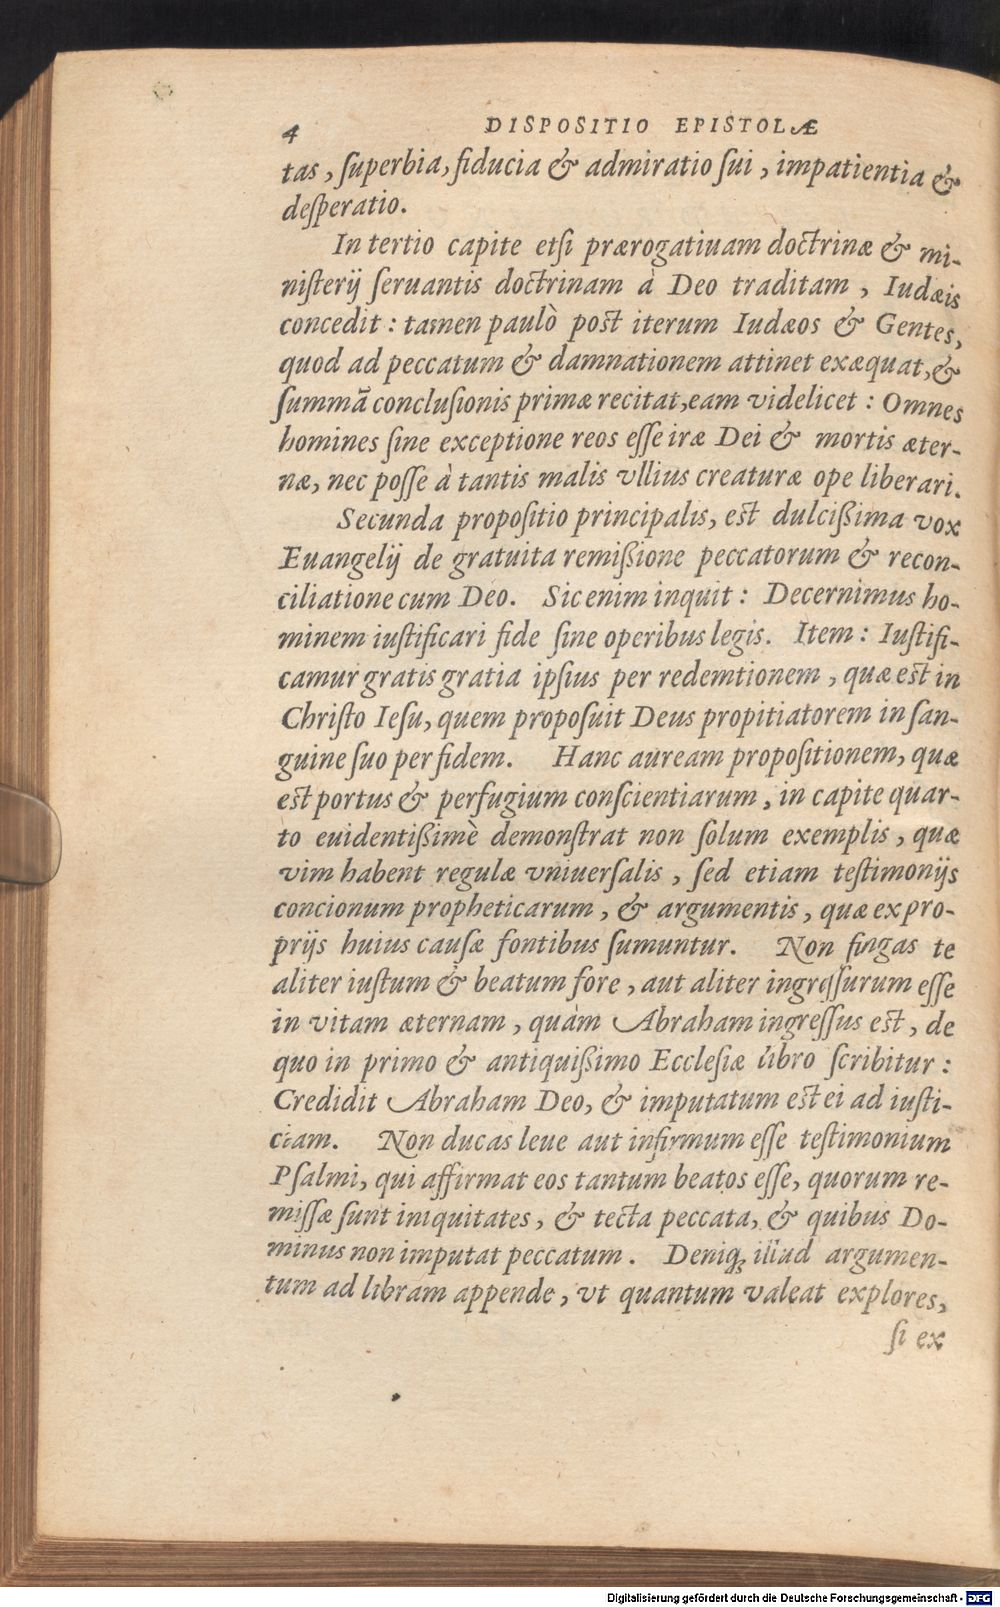 4 DISPOSITIO EPISTOLÆ
tas, ſuperbia, fiducia & admiratio ſui, impatientia &
deſperatio.
In tertio capite etſi prærogatiuam doctrinæ & mi-
niſterij ſeruantis doctrinam à Deo traditam, Iudæis
concedit: tamen paulò poſt iterum Iudæos & Gentes,
quod ad peccatum & damnationem attinet exæquat, &
ſummã concluſionis primæ recitat, eam videlicet: Omnes
homines ſine exceptione reos eſſe iræ Dei & mortis æter-
næ, nec poſſe à tantis malis vllius creaturæ ope liberari.
Secunda propoſitio principalis, eſt dulcißima vox
Euangelij de gratuita remißione peccatorum & recon-
ciliatione cum Deo. Sic enim inquit: Decernimus ho-
minem iuſtificari fide ſine operibus legis. Item: Iuſtifi-
camur gratis gratia ipſius per redemtionem, quæ eſt in
Chriſto Ieſu, quem propoſuit Deus propitiatorem in ſan-
guine ſuo per fidem. Hanc auream propoſitionem, quæ
eſt portus & perfugium conſcientiarum, in capite quar-
to euidentißimè demonſtrat non ſolum exemplis, quæ
vim habent regulæ vniuerſalis, ſed etiam teſtimonijs
concionum propheticarum, & argumentis, quæ ex pro-
prijs huius cauſæ fontibus ſumuntur. Non fingas te
aliter iuſtum & beatum fore, aut aliter ingreſſurum eſſe
in vitam æternam, quàm Abraham ingreſſus eſt, de
quo in primo & antiquißimo Eccleſiæ libro ſcribitur:
Credidit Abraham Deo, & imputatum eſt ei ad iuſti-
ciam. Non ducas leue aut infirmum eſſe teſtimonium
Pſalmi, qui affirmat eos tantum beatos eſſe, quorum re-
miſſæ ſunt iniquitates, & tecta peccata, & quibus Do-
minus non imputat peccatum. Deniq; illud argumen-
tum ad libram appende, vt quantum valeat explores,
ſi ex
Digitalisierung gefördert durch die Deutsche Forschungsgemeinschaft - DFG